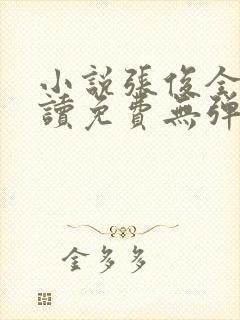 小說張俊全
讀免費無彈
金多多